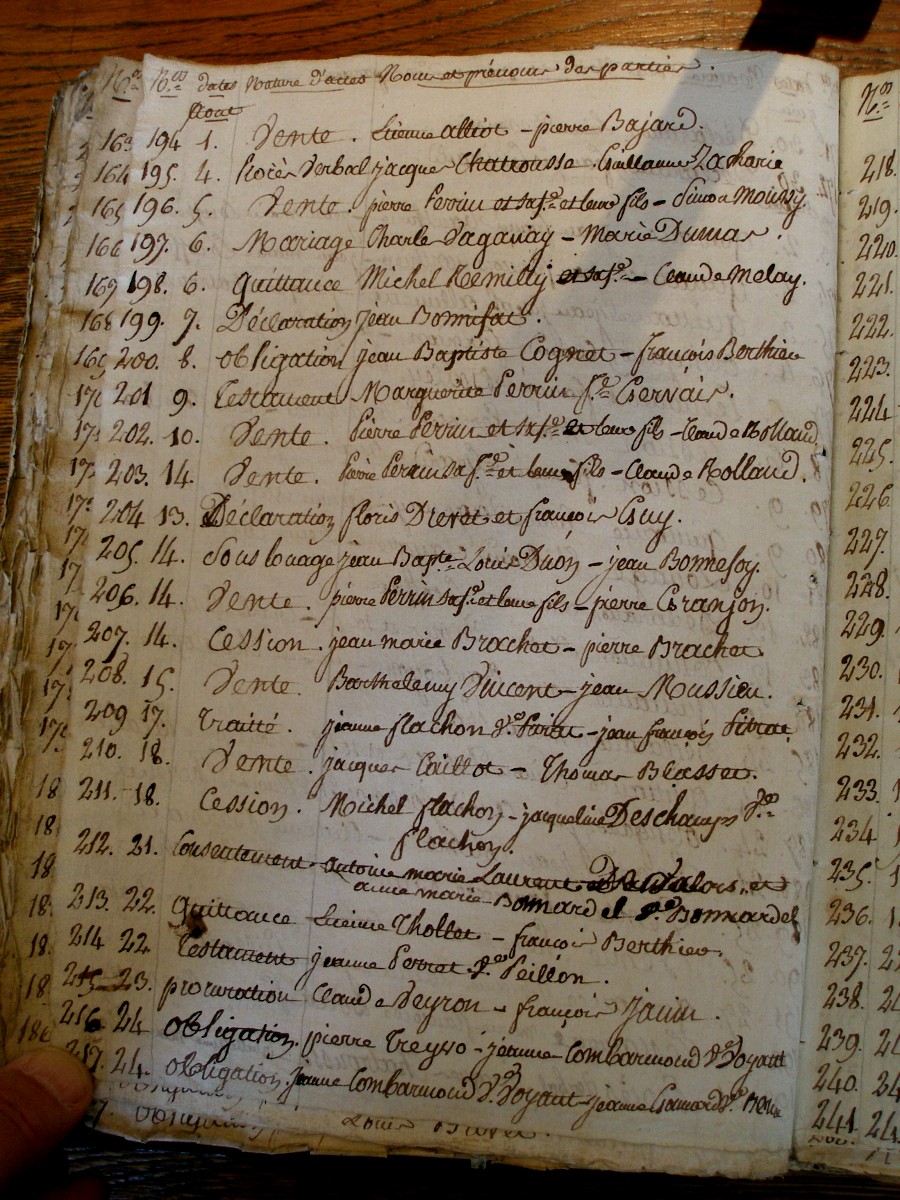 N.os N.os dates Nature d'actes Noms et prénoms des parties.
Aout
163 194 1. Vente. Etienne alliot - pierre Bajard.
164 195. 4. Procès Verbal jacques Chatrousse Guillaume Zacharie
165 196. 5. Vente. pierre Perrin et sa f.e et leurs fils - Simon Moussy.
166 197. 6. Mariage Charle Daganay - Marie Dumas.
167 198. 6. quittance Michel Remilly et sa f.e - Claude Melay.
168 199. 7. Déclaration jean Bonnifat.
169 200. 8. obligation jean Baptiste Cognet - françois Berthieu
170 201 9. Testament Marguerite Perrin f.e Gervais.
17 202. 10. Vente. Pierre Perrin et sa f.e et leur fils - Claude Rolland.
17 203. 14. Vente. Pierre Perrin sa f.e et leurs fils - Claude Rolland.
17 204 13. Déclaration floris Drevet et françois Guy.
17 205. 14. Sous louage jean Bapte Louis Duon - jean Bonnefoy.
17 206. 14. Vente. pierre Perrin sa f.e et leurs fils - pierre Granjon.
17 207. 14. Cession. jean marie Brochet - pierre Brachet
17 208. 15. Vente. Barthelemy Vincent - jean Mussieu.
17 209 17. Traitté. jeanne flachon V.e Pitrat - jean françois Pitrat.
17 210. 18. Vente. jacques Caillot - Thomas Blasset.
18 211. 18. Cession. Michel flachon - jacqueline Deschamps V.e
18 flachon.
18 212. 21. Consentement antoine marie Laurent et
anne marie Bonnardel V.e Bonnardel
18. 213. 22. quittance Etienne Thollet - françois Berthieu.
18. 214 22. Testament jeanne Perret V.e Peillon.
18 215 23. procuration Claude Veyron - françois janin.
18 216. 24 obligation. pierre Treyvo - jeanne Combarmond V.e Doyant
217. 24. obligation. jeanne Combarmond V.e Doyant - jeanne V.e
Louis
N.os
218.
219.
220.
221.
222.
223.
224
225.
226.
227.
228.
229.
230.
231.
232.
233.
234
235.
236.
237.
238.
239.
240.
241.